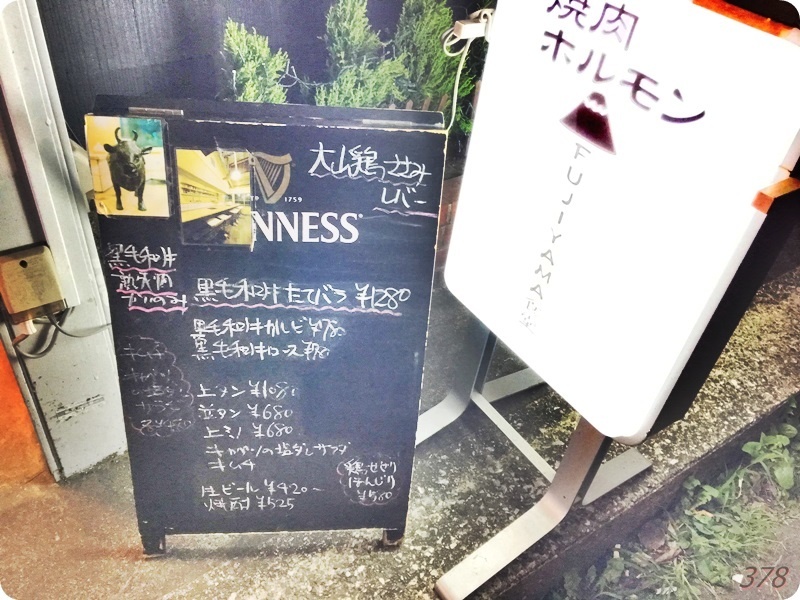 焼肉
ホルモン
FUJIYAMA
大山鶏
レバー
1759
NNESS
黒毛和牛
黒毛和牛たてバラ ¥1280
黒毛和牛カルビ ¥780
黒毛和牛ロース
上タン ¥1080
並タン ¥680
上ミノ ¥680
キャベツの塩ダレサラダ
キムチ
生ビール ¥420~
焼酎 ¥525
鶏せせり
ぼんじり
¥580
キムチ
キャベツ
サラダ
378